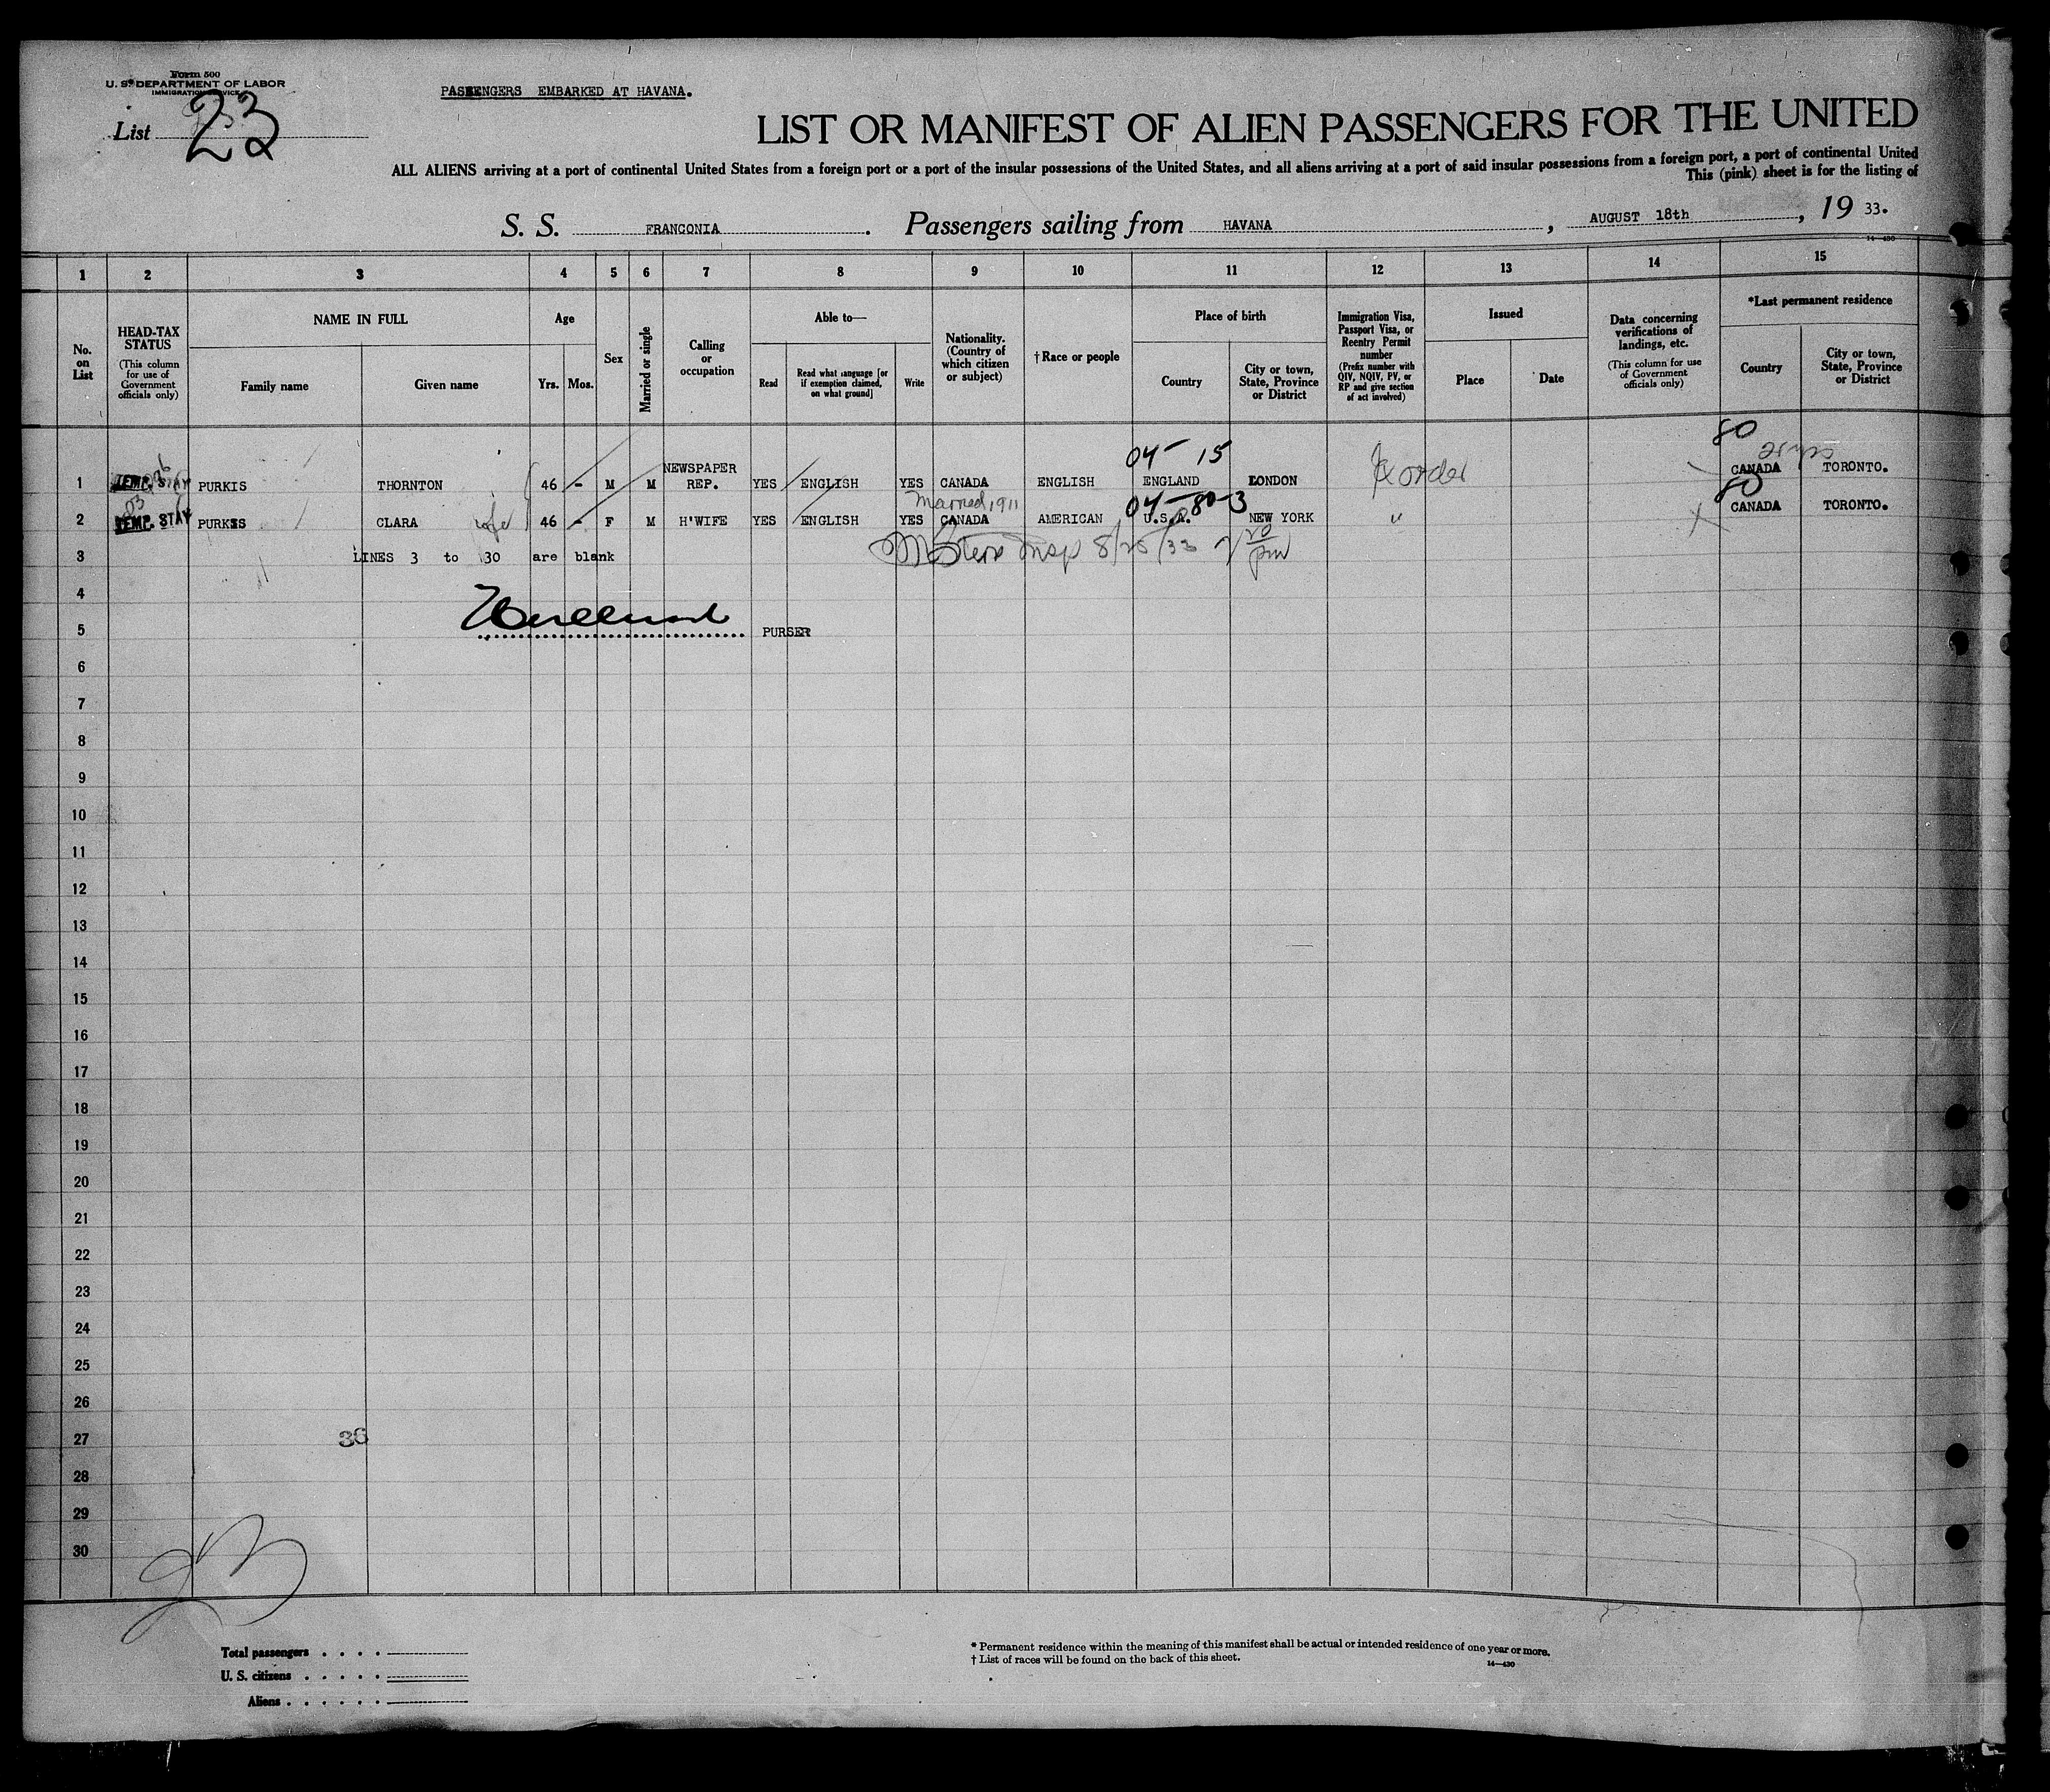 Form 500
U. S. DEPARTMENT OF LABOR
IMMIGRATION SERVICE
List 23
PASSENGERS EMBARKED AT HAVANA.
LIST OR MANIFEST OF ALIEN PASSENGERS FOR THE UNITED
ALL ALIENS arriving at a port of continental United States from a foreign port or a port of the insular possessions of the United States, and all aliens arriving at a port of said insular possessions from a foreign port, a port of continental United
This (pink) sheet is for the listing of
S. S. FRANCONIA. Passengers sailing from HAVANA, AUGUST 18th, 19 33.
14—430
1 2 3 4 5 6 7 8 9 10 11 12 13 14 15
No. on List
HEAD-TAX STATUS
(This column for use of Government officials only)
NAME IN FULL
Family name
Given name
Age
Yrs.
Mos.
Sex
Married or single
Calling or occupation
Able to—
Read
Read what language [or if exemption claimed, on what ground]
Write
Nationality. (Country of which citizen or subject)
† Race or people
Place of birth
Country
City or town, State, Province or District
Immigration Visa, Passport Visa, or Reentry Permit number
(Prefix number with QIV, NQIV, PV, or RP and give section of act involved)
Issued
Place
Date
Data concerning verifications of landings, etc.
(This column for use of Government officials only)
*Last permanent residence
Country
City or town, State, Province or District
04-15
80
1 TEMP. STAY PURKIS THORNTON 46 - M M NEWSPAPER REP. YES ENGLISH YES CANADA ENGLISH ENGLAND LONDON Ex order CANADA TORONTO.
Married 1911
04-80-3
80
2 TEMP. STAY PURKIS CLARA wife 46 - F M H'WIFE YES ENGLISH YES CANADA AMERICAN U.S.A. NEW YORK " CANADA TORONTO.
3 LINES 3 to 30 are blank Insp 8/25/33 pm
4
5 PURSER
6
7
8
9
10
11
12
13
14
15
16
17
18
19
20
21
22
23
24
25
26
27 36
28
29
30
Total passengers
U. S. citizens
Aliens
* Permanent residence within the meaning of this manifest shall be actual or intended residence of one year or more.
† List of races will be found on the back of this sheet.
14—430